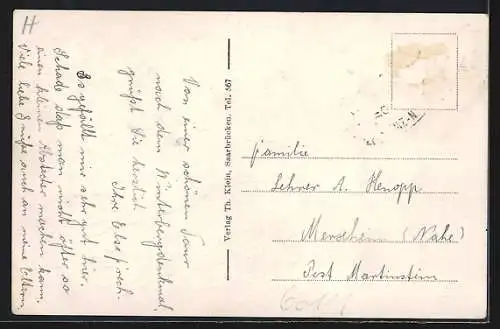 H
Von einer schönen Tour
nach dem Winterbergdenkmal,
grüßt Sie herzlich
Ihre Else
Es gefällt mir sehr gut hier.
Schade daß man nicht öfter so
einen kleinen Abstecher machen kann.
Viele liebe Grüße auch an meine Eltern.
Verlag Th. Klein, Saarbrücken, Tel. 367
Familie
Lehrer A. Henopp
Merxheim (Nahe)
Post Martinstein